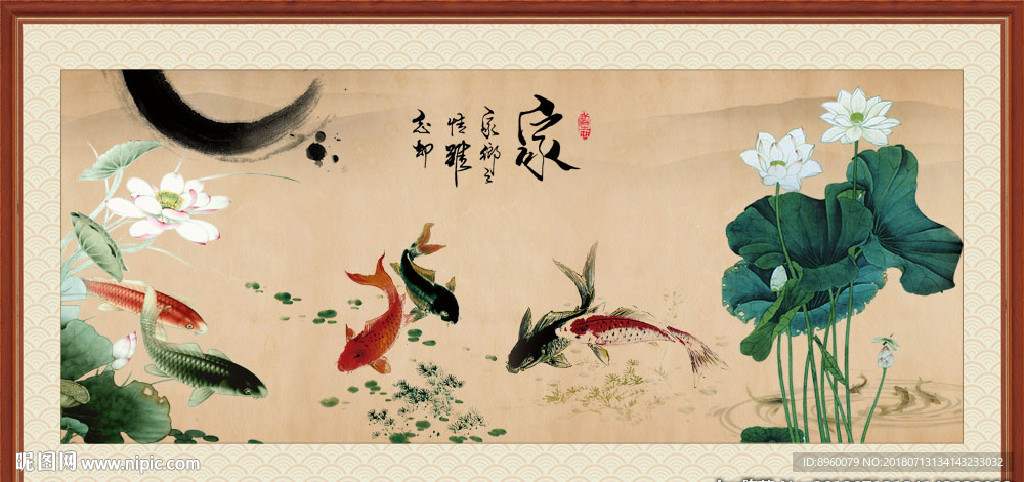 家
家鄉之
情雖
忘却
昵图网 www.nipic.com
ID:8960079 NO:20180713134143233032